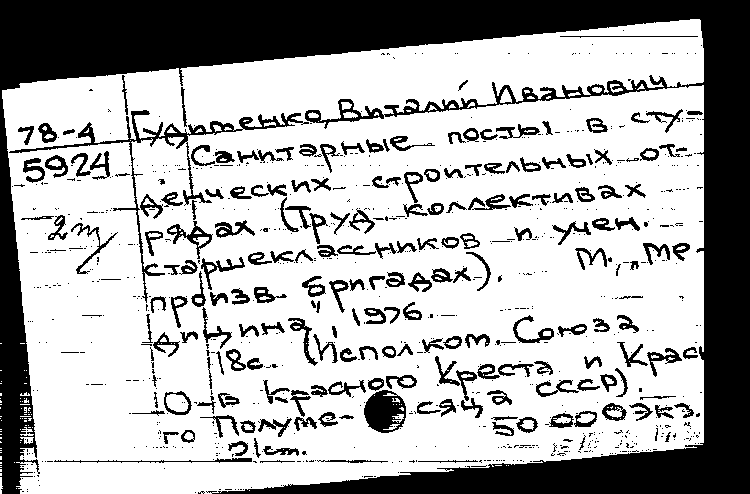 78-4
5924
2т/
Гудитенко, Виталий Иванович.
Санитарные посты в сту-
денческих строительных от-
рядах. (Труд. коллективах
старшеклассников и учен.
произв. бригадах). М., "Ме-
дицина", 1976.
18с. (Исполком. Союза
О-в Красного Креста и Красно-
го Полуме- сяца СССР).
50 000 экз.